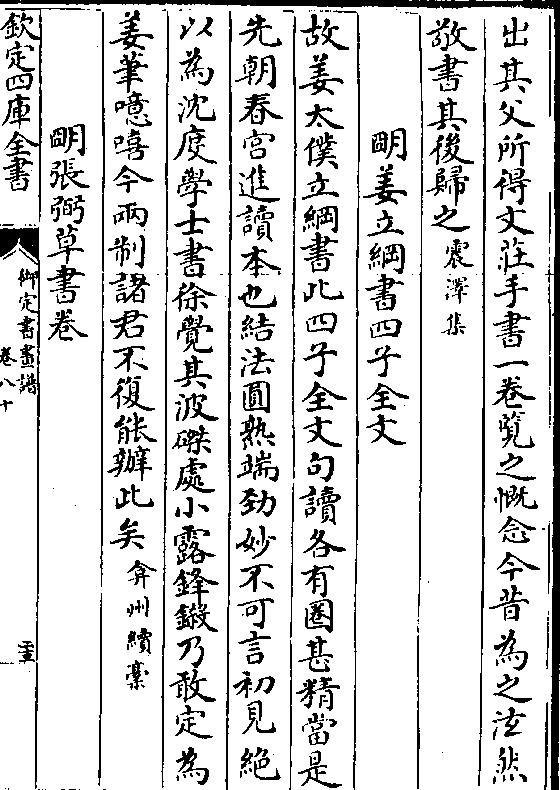 出其父所得文莊手書一卷覽之慨念今昔為之泫然
敬書其後歸之震澤集
明姜立綱書四子全文
故姜太僕立綱書此四子全文句讀各有圈甚精當是
先朝春宮進讀本也結法圓熟端勁妙不可言初見絶
以為沈度學士書徐覺其波磔處小露鋒鎩乃敢定為
姜筆噫嘻今兩制諸君不復能辦此矣弇州續藁
明張弼草書卷
欽定四庫全書
御定書畫譜
卷八十
三十五